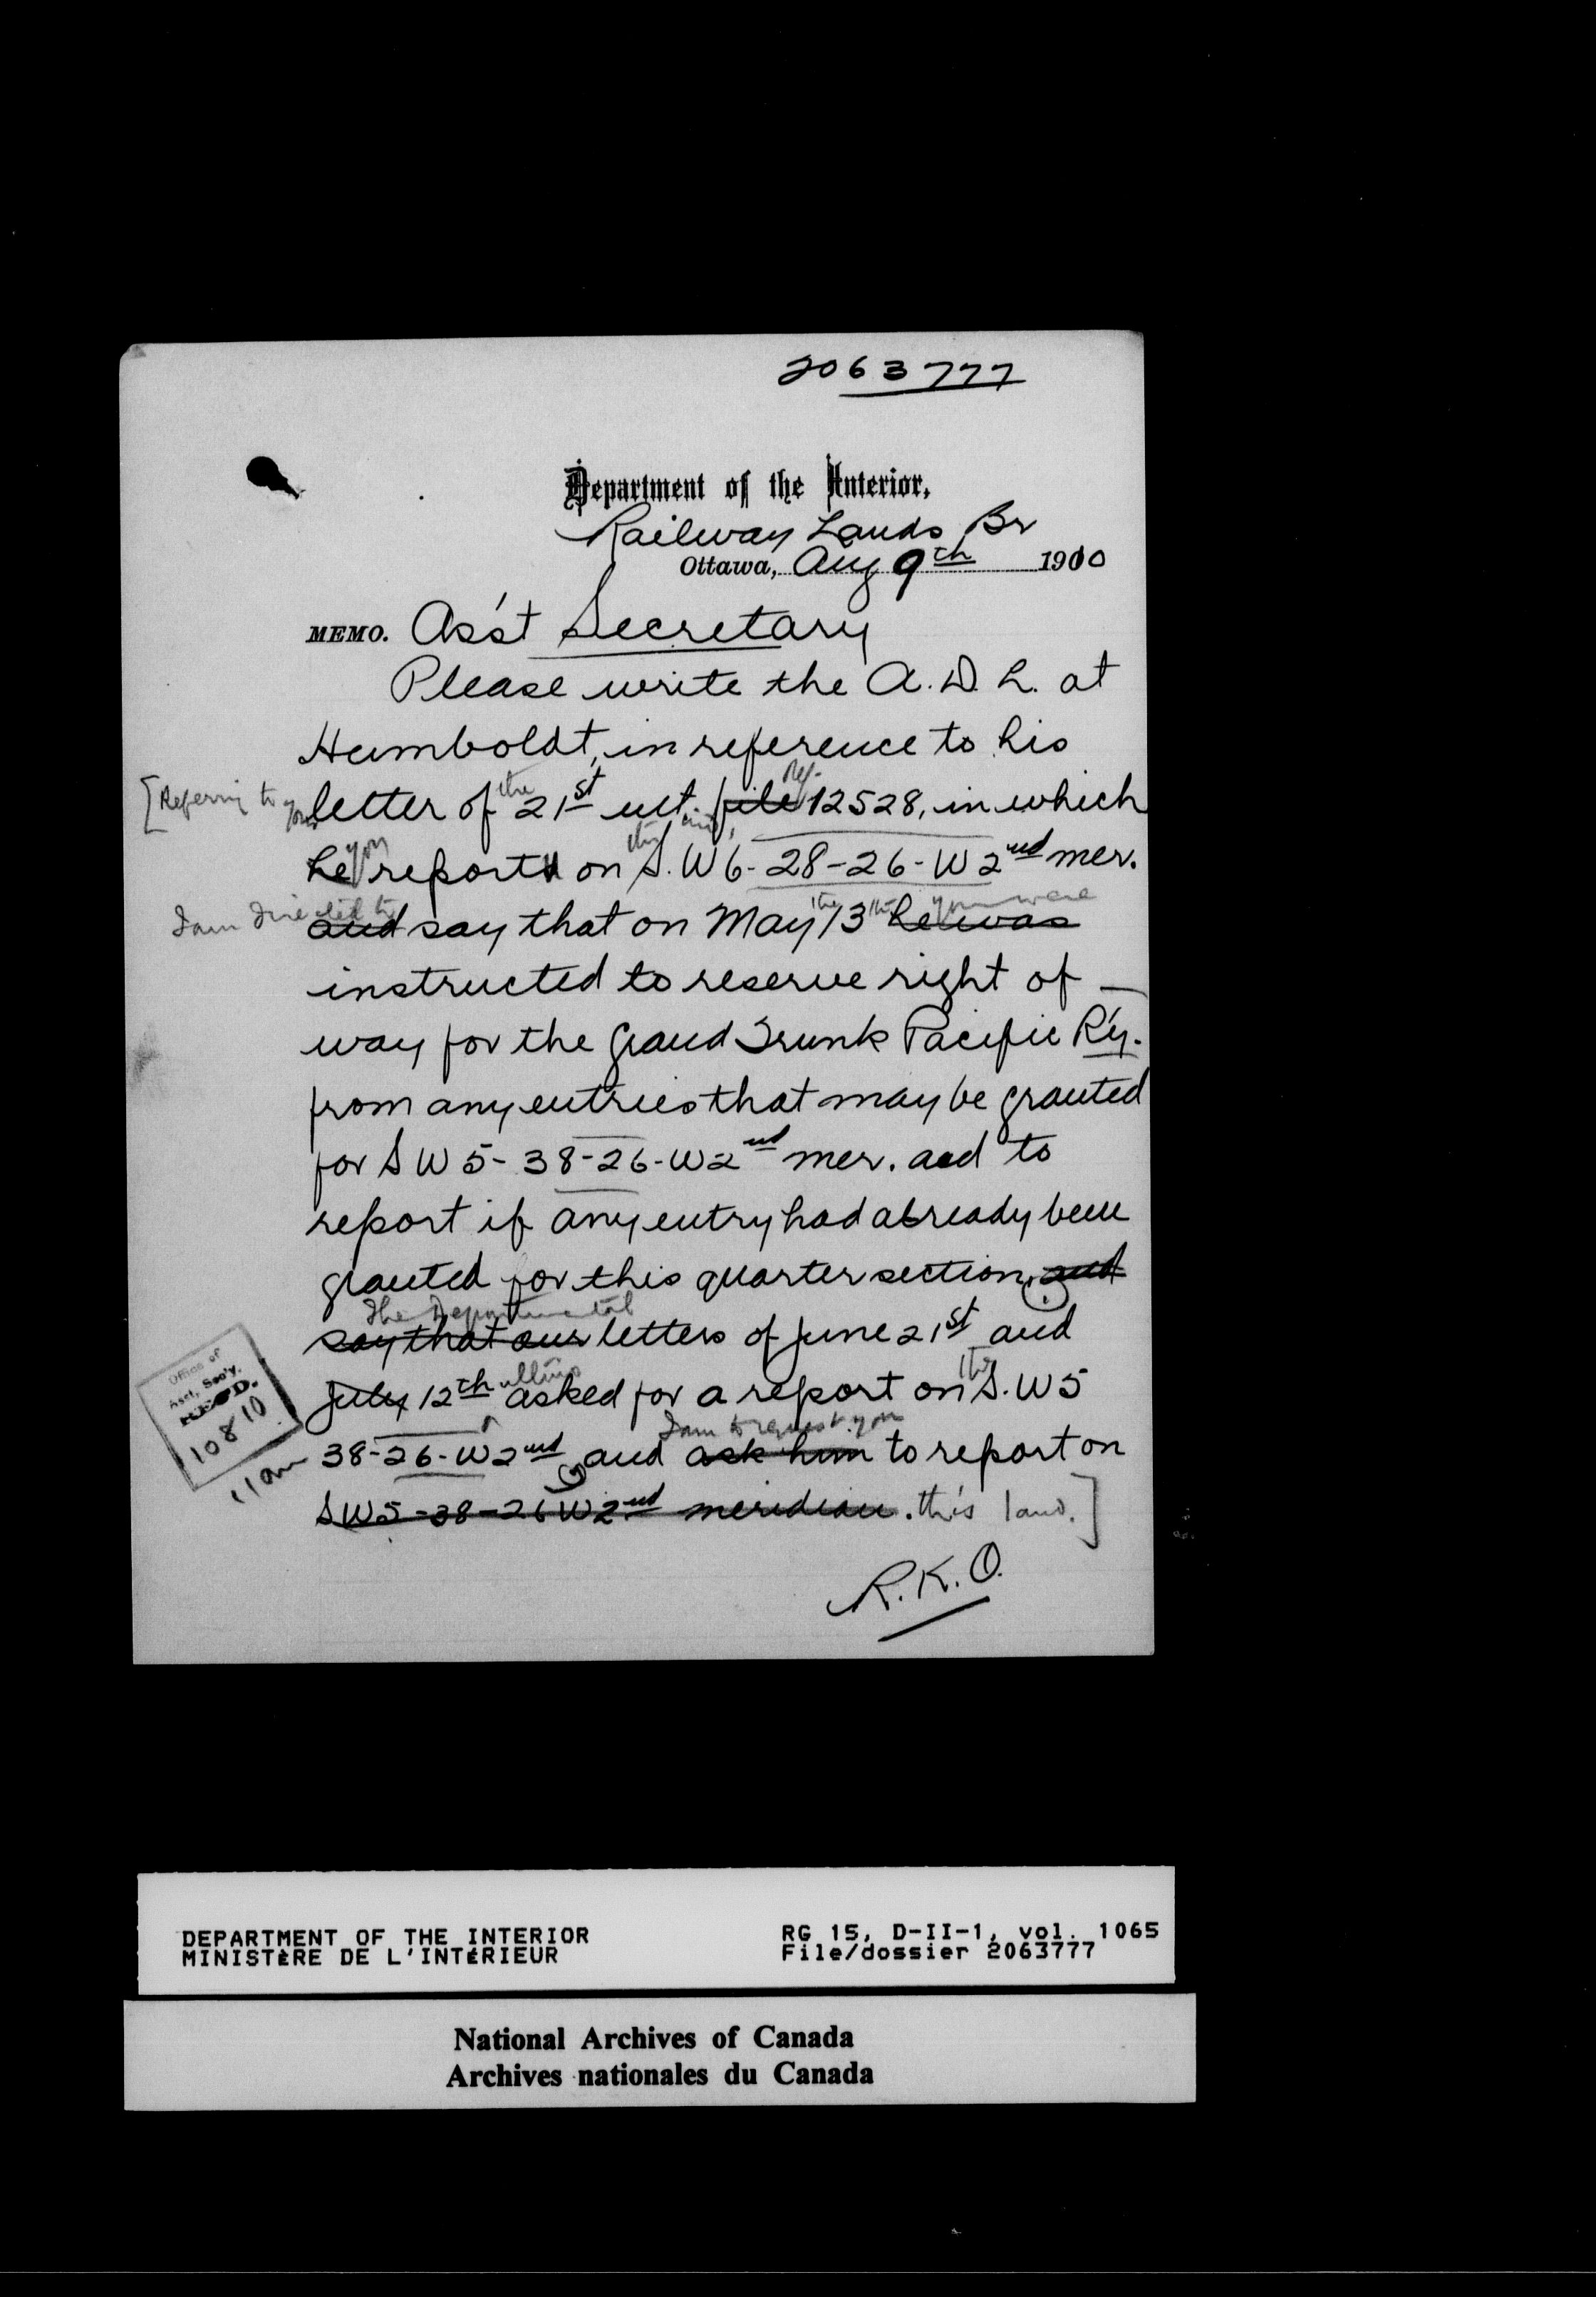 2063777
Department of the Interior,
Railway Lands Br
Ottawa, Aug 9th 1910
MEMO. Ass't Secretary
Please write the A. D. L. at
Humboldt, in reference to his
[Referring to your letter of the 21st ult. file Ref. 12528, in which
he you reports on the S. W 6-28-26-W 2nd mer.
I am directed to and say that on May the 13th he was you were
instructed to reserve right of
way for the Grand Trunk Pacific R'y.
from any entries that may be granted
for S W 5-38-26-W2nd mer. and to
report if any entry had already been
granted for this quarter section. and
The Departmental
say that our letters of June 21st and
July 12th ultimo asked for a report on the S. W 5
38-26-W2nd and ask him I am to request you to report on
S W 5-38-26 W 2nd meridian. this land.]
R. K. O.
Office of
Asst. Sec'y.
REC'D.
10 8 10
11 am
DEPARTMENT OF THE INTERIOR
MINISTÈRE DE L'INTÉRIEUR
RG 15, D-II-1, vol. 1065
File/dossier 2063777
National Archives of Canada
Archives nationales du Canada